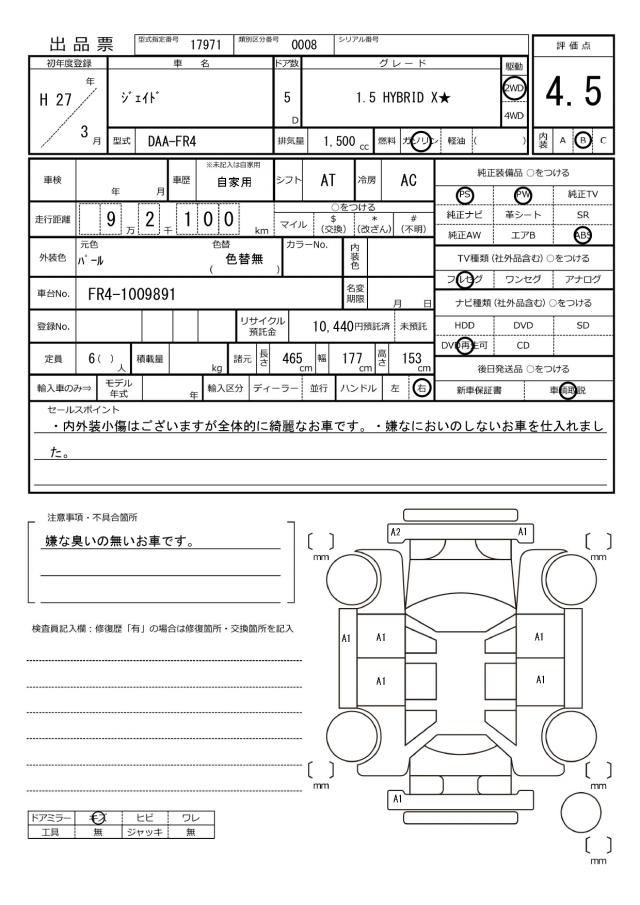 出品票 型式指定番号 17971 類別区分番号 0008 シリアル番号
評価点
4.5
内装 A B C
初年度登録 車名 ドア数 グレード 駆動
H 27 年 3 月
ジェイド 5 D 1.5 HYBRID X★ 2WD 4WD
型式 DAA-FR4 排気量 1,500 cc 燃料 ガソリン 軽油 ( )
車検 年 月 車歴 ※未記入は自家用 自家用 シフト AT 冷房 AC
走行距離 9 万 2 千 1 0 0 km
○をつける
マイル $ (交換) * (改ざん) # (不明)
外装色 元色 パール 色替 ( 色替無 ) カラーNo. 内装色
車台No. FR4-1009891 名変期限 月 日
登録No. リサイクル預託金 10,440円預託済 未預託
定員 6( ) 人 積載量 kg 諸元 長さ 465 cm 幅 177 cm 高さ 153 cm
輸入車のみ⇒ モデル年式 年 輸入区分 ディーラー 並行 ハンドル 左 右
純正装備品 ○をつける
PS PW 純正TV
純正ナビ 革シート SR
純正AW エアB ABS
TV種類 (社外品含む) ○をつける
フルセグ ワンセグ アナログ
ナビ種類 (社外品含む) ○をつける
HDD DVD SD
DVD再生可 CD
後日発送品 ○をつける
新車保証書 車輌取説
セールスポイント
・内外装小傷はございますが全体的に綺麗なお車です。・嫌なにおいのしないお車を仕入れまし
た。
注意事項・不具合箇所
嫌な臭いの無いお車です。
検査員記入欄：修復歴「有」の場合は修復箇所・交換箇所を記入
ドアミラー キズ ヒビ ワレ
工具 無 ジャッキ 無
A2 A1
mm mm
A1 A1 A1
A1 A1
mm mm
A1
mm